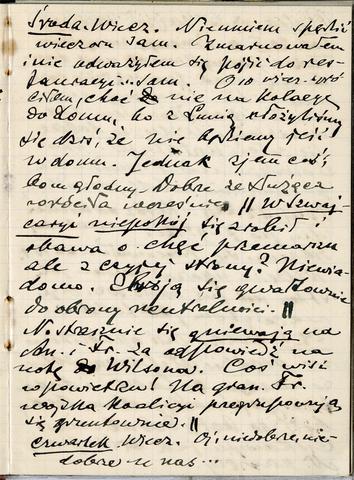 Środa. Wiecz. Nie umiem spędzić
wieczoru sam. Zmarnowałem
i nie odważyłem się pójść do res-
tauracyi... sam. O 10 wiecz. wró-
ciłem, choć nie na kolacyę
do domu, bo z Lunią ułożyliśmy
się dziś, że nie będziemy jeść
w domu. Jednak zjem coś
bom głodny. Dobrze że służąca
wróciła wcześnie || W Szwaj
caryi niepokój się zrobił i
obawa o chęć przemarszu
ale z czyjej strony? Niewia-
domo. się gwałtownie
do obrony neutralności. ||
N. strasznie się gniewają na
An. i Fr. za odpowiedź na
notę Wilsona. Coś wisi
w powietrzu! Na gran. Fr.
wojska koalicyi przegrupowują
się gruntownie. ||
Czwartek Wiecz. Oj, niedobrze, nie-
dobrze u nas...